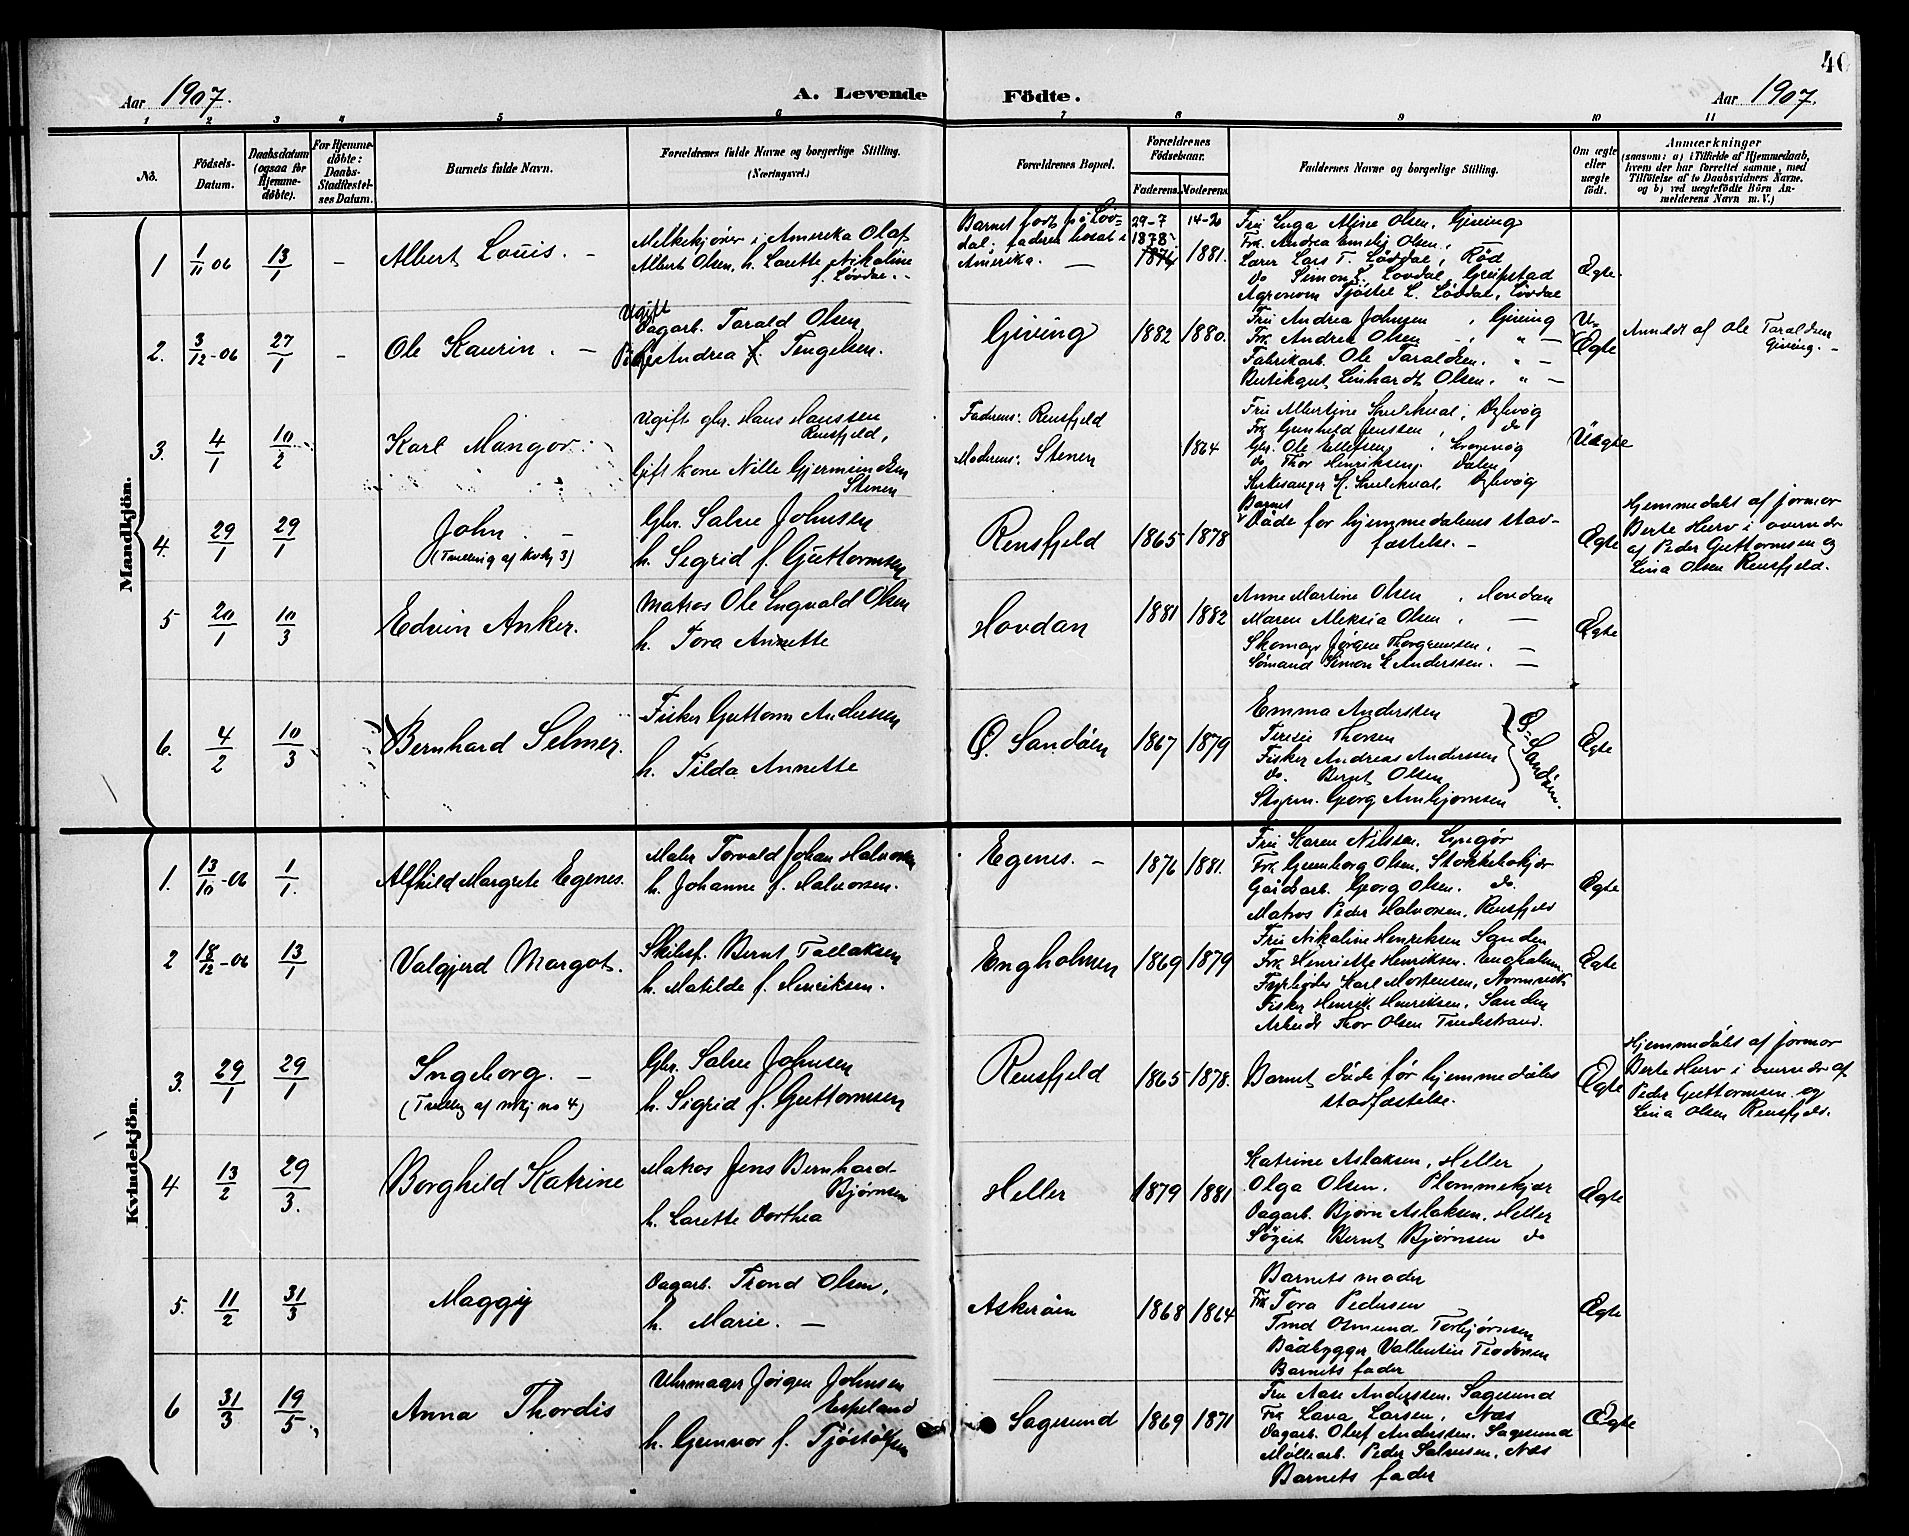 40
Aar 1907.
A. Levende Födte.
Aar 1907.
1 2 3 4 5 6 7 8 9 10 11
No.
Födsels-
Datum.
Daabsdatum
(ogsaa for
Hjemme-
døbte).
For Hjemme-
døbte:
Daabs-
Stadfæstel-
ses Datum.
Barnets fulde Navn.
Forældrenes fulde Navne og borgerlige Stilling.
(Næringsvei.)
Forældrenes Bopæl.
Forældrenes
Födselsaar.
Faderens.
Moderens.
Faddernes Navne og borgerlige Stilling.
Om ægte
eller
uægte
født.
Anmærkninger
(saasom: a) i Tilfælde af Hjemmedaab,
hvem der har forrettet samme, med
Tilföielse af to Daabsvidners Navne,
og b) ved uægtefödte Börn An-
melderens Navn m. V.)
Mandkjön.
1 1/11 06 13/1 - Albert Louis. -
Melkekjører i Amerika Olaf
Albert Olsen, h. Larette Nikoline
f. Lövdal. -
Barnet født på Löv-
dal; faderen bosat i
Amerika. -
29-7
1878
1874
14-20
1881.
Fru Inga Aline Olsen, Giving
Frk. Andrea Emelij Olsen, -
Lærer Lars T. Löddal, Röd
do Simon L. Lovdal, Gripstad
Agronom Tjöstel L. Lövdal, Lövdal
Ægte.
2. 3/12-06 27/1 - Ole Kaurin. -
Ugift
Dagarb. Tarald Olsen
Pige Andrea L. Tengelsen.
Giving 1882 1880.
Fru Andrea Johnsen, Giving
Frk. Andrea Olsen -, " -
Fabrikarb. Ole Taraldsen. " -
Butikgut Linhardt Olsen. " -
U-
Ægte
Anmeldt af Ole Taraldsen
Giving. -
3. 4/1 10/2 Karl Mangor.
Ugift gbr. Hans Hanssen
Rensfjeld,
Gift kone Nille Gjermundsen
Stenen
Faderens: Rensfjeld
Moderens: Stenen
1864
Fru Albertine Skulekval, Dybvåg
Frk Gunhild Jenssen, do
Gbr. Ole Ellefsen,
do Thor Henriksen. Dalen
Kirkesanger H. Skulekval, Dybvåg
Uægte
4. 29/1 29/1 John. -
(Tvilling af kvkj 3)
Gbr. Salve Johnsen
h. Sigrid f. Guttormsen
Rensfjeld 1865 1878
Barnet
døde før hjemmedåbens stad-
fæstelse. -
Ægte
Hjemmedåbt af jormor
Berte Herv i overvær
af Peder Guttormsen og
Lina Olsen Rensfjeld.
5 20/1 10/3 Edvin Anker.
Matros Ole Ingvald Olsen
h. Tora Annette
Hovdan 1881 1882
Anne Martine Olsen, Hovdan
Maren Aleksia Olsen, -
Skomag Jørgen Thorgrimsen, -
Sømand Simon E Anderssen. -
Ægte
6. 4/2 10/3 Bernhard Selmer.
Fisker Guttorm Anderssen
h. Tilda Annette
Ö. Sandöen 1867 1879
Emma Anderssen
Teresie Thorsen
Fisker Andreas Anderssen
do. Bernt Olsen
Styrm. Georg Arnbjørnsen
Ö. Sandöen.
Ægte
Kvindekjön.
1. 13/10-06 1/1. Alfhild Margrete Egenes.
Maler Torvald Johan Halvorsen
h. Johanne f. Halvorsen.
Egenes. - 1876 1881.
Fru Karen Nilssen. Lyngör
Frk Gunborg Olsen, Stokkekjær
Gårdsarb. Georg Olsen. do.
Matros Peder Halvorsen. Rensfjeld
Ægte
2 18/12-06 13/1 Valgjerd Margot.
Skibsf. Bernt Tallaksen
h. Matilde f. Henriksen.
Engholmen 1869 1879
Fru Nikoline Henriksen Sanden
Frk. Henriette Henriksen. Engholmen
Fyrbøder Karl Mortensen,
Fisker Henrik Henriksen. Sanden
Arbeidr Thor Olsen Tvedestrand.
Ægte
3. 29/1 29/1 Ingeborg. -
(Tvilling af mkj no 4)
Gbr. Salve Johnsen
h. Sigrid f. Guttormsen
Rensfjeld 1865 1878.
Barnet døde før hjemmedåbs
stadfæstelse.
Ægte
Hjemmedåbt af jormor
Berte Herv i overvær af
Peder Guttormsen og
Lina Olsen Rensfjeld.
4 13/2 29/3. Borghild Katrine
Matros Jens Bernhard
Bjørnsen
h. Larette Dorthea
Heller 1879 1881
Katrine Aslaksen, Heller
Olga Olsen, Plommekjær
Dagarb. Bjørn Aslaksen. Heller
Søgut Bernt Bjørnsen do
Ægte
5. 11/2 31/3 Maggy
Dagarb. Trond Olsen,
h. Marie. -
Askeröen 1868 1864
Barnets moder
Frk Tora Pedersen
Tmd Osmund Torbjørnsen
Bådbygger Vallentin Teodorsen
Barnets fader
Ægte
6 31/3 19/5 Anna Thordis
Uhrmager Jørgen Johnsen
Espeland
h. Gunvor f. Tjöstölsen
Sagesund 1869 1871
Fru Aase Anderssen. Sagesund
Frk Lava Larsen, Næs
Dagarb. Olef Anderssen. Sagesund
Møllearb. Peder Salvesen, Næs
Barnets fader
Ægte